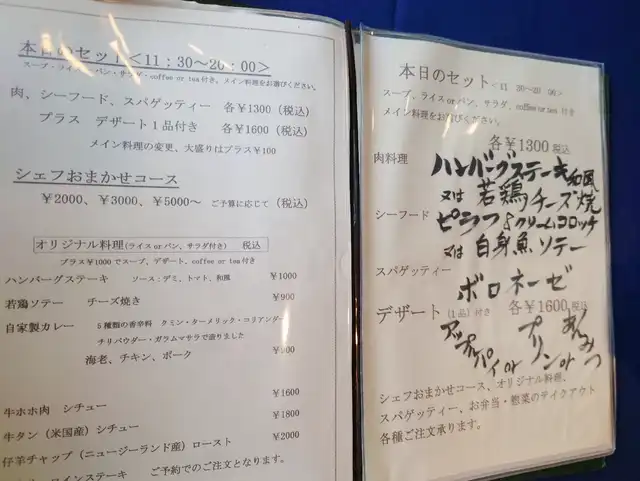 本日のセット<11:30～20:00>
スープ・ライスorパン・サラダ・coffee or tea付き。メイン料理をお選びください。
肉、シーフード、スパゲッティー 各￥1300(税込)
プラス デザート1品付き 各￥1600(税込)
メイン料理の変更、大盛りはプラス￥100
シェフおまかせコース
￥2000、￥3000、￥5000～ ご予算に応じて(税込)
オリジナル料理(ライスorパン、サラダ付き) 税込
プラス￥1000でスープ、デザート、coffee or tea付き
ハンバーグステーキ ソース:デミ、トマト、和風 ￥1000
若鶏ソテー チーズ焼き ￥900
自家製カレー 5種類の香辛料 クミン・ターメリック・コリアンダー
チリパウダー・ガラムマサラで創りました
海老、チキン、ポーク ￥900
￥1600
牛ホホ肉 シチュー
￥1800
牛タン(米国産)シチュー
￥2000
仔羊チャップ(ニュージーランド産)ロースト
コインステーキ ご予約でのご注文となります。
本日のセット<11 30～20 00>
スープ、ライスorパン、サラダ、coffee or tea 付き
メイン料理をお選びください。
各￥1300税込
肉料理
ハンバーグステーキ和風
又は 若鶏チーズ焼
シーフード
ピラフ&クリームコロッケ
又は 白身魚ソテー
スパゲッティー
ボロネーゼ
デザート(1品)付き 各￥1600税込
アップルパイor プリンor あんみつ
シェフおまかせコース、オリジナル料理、
スパゲッティー、お弁当・惣菜のテイクアウト
各種ご注文承ります。